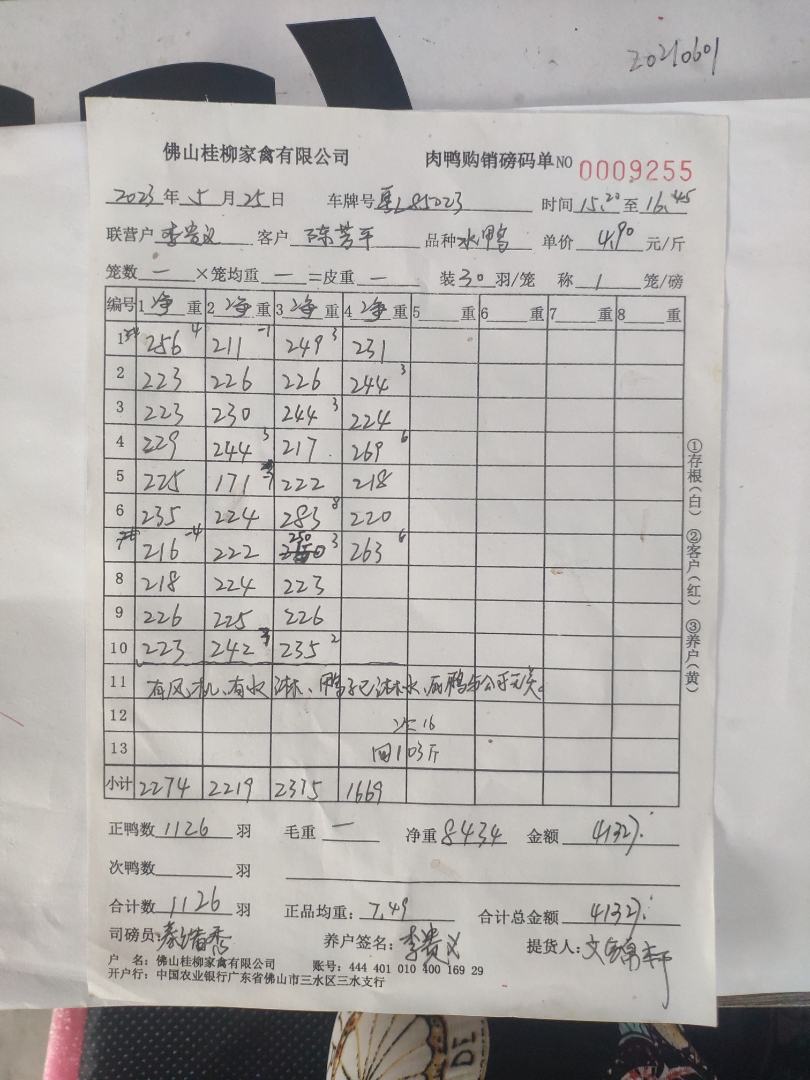 20210601
佛山桂柳家禽有限公司 肉鸭购销磅码单NO 0009255
2023年5月25日 车牌号粤L85023 时间15.20至16.45
联营户李贵义 客户陈芳平 品种水鸭 单价4.90元/斤
笼数一×笼均重一=皮重一 装30羽/笼 称1笼/磅
编号 1净重 2净重 3净重 4净重 5重 6重 7重 8重
1 256 4 211 -1 249 3 231
2 223 226 226 244 3
3 223 230 244 3 224
4 229 244 3 217 269 6
5 225 171 222 218
6 235 224 283 8 220
7 216 -4 222 250 3 263 6
8 218 224 223
9 226 225 226
10 223 242 235 2
11 有风机、有水淋、鸭子已淋水、与公司无关。
12 16
13 回103斤
小计 2274 2219 2375 1669
正鸭数1126羽 毛重一 净重8434 金额41327
次鸭数羽
合计数1126羽 正品均重:7.49 合计总金额41327
司磅员: 养户签名:李贵义 提货人:
户 名:佛山桂柳家禽有限公司 账号:444 401 010 400 169 29
开户行:中国农业银行广东省佛山市三水区三水支行
①存根(白) ②客户(红) ③养户(黄)